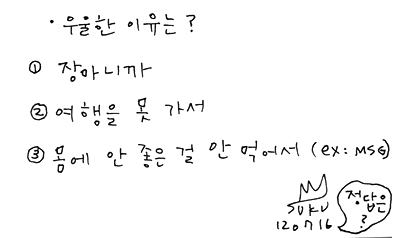 · 우울한 이유는?
① 장마니까
② 여행을 못 가서
③ 몸에 안 좋은 걸 안 먹어서 (ex: MSG)
정답은
?
120716